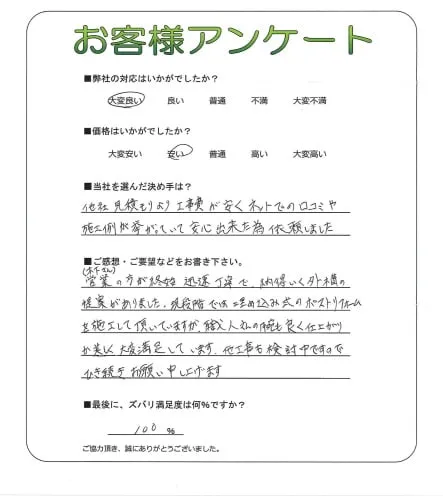 お客様アンケート
■弊社の対応はいかがでしたか?
大変良い 良い 普通 不満 大変不満
■価格はいかがでしたか?
大変安い 安い 普通 高い 大変高い
■当社を選んだ決め手は?
他社見積もりより工事費が安くネットでの口コミや
施工例が挙がっていて安心出来た為依頼しました
■ご感想・ご要望などをお書き下さい。
営業の方が終始迅速丁寧で、納得いく外構の
提案がありました。現段階では埋め込み式のポストリフォーム
を施工して頂いていますが、職人さんの腕も良く仕上がり
が美しく大変満足しています。他工事も検討中ですので
ひき続きお願い申し上げます
■最後に、ズバリ満足度は何%ですか?
100 %
ご協力頂き、誠にありがとうございました。